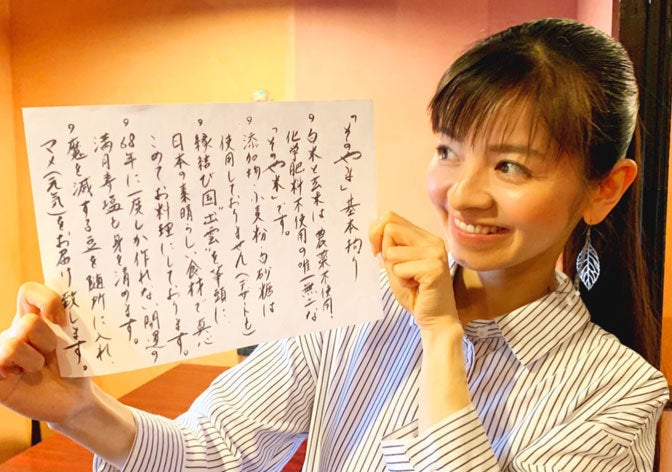 「そのやま」基本拘り
９白米と玄米は農薬不使用、
化学肥料不使用の唯一無二な
「そのやま米」です。
９添加物・小麦粉・白砂糖は
使用しておりません(デザートも)
９縁結び国“出雲”を筆頭に
日本の素晴らし食材で真心
こめてお料理にしております。
９68年に一度しか作れない開運の
満月寿塩と身を清めます。
９魔を滅する豆を随所に入れ、
マメ(元気)をお届け致します。